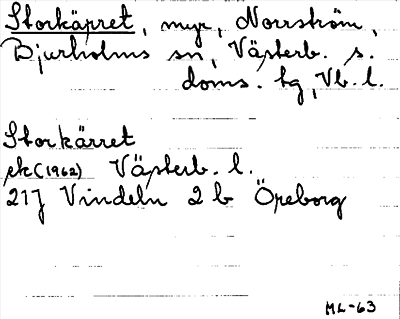 Storkärret, myr, Norrström,
Bjurholms sn, Västerb. s.
doms. tg, Vb. l.
Storkärret
ek (1962) Västerb. l.
21J Vindeln 2 b Öreborg
ML-63